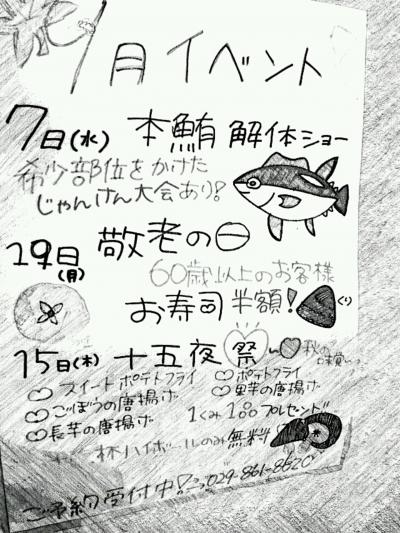 9月イベント
7日(水) 本鮪 解体ショー
希少部位をかけた
じゃんけん大会あり!
19日(月) 敬老の日
60歳以上のお客様
お寿司半額!
くり
15日(木) 十五夜祭
秋の
スイートポテトフライ
ポテトフライ
ごぼうの唐揚げ
里芋の唐揚げ
長芋の唐揚げ
1くみ100プレゼント
杯ハイボールのみ無料
ご予約受付中! 029-861-8820